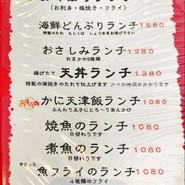 (お刺身・塩焼き・フライ)
海鮮どんぶりランチ 1580
おさしみランチ 1280
おまかせ6種類
揚げたて 天丼ランチ 1380
かに天津飯ランチ 1080
焼魚のランチ 1080
日替わりです
煮魚のランチ 1080
日替わりです
サクッと
魚フライのランチ 1080
4種類のフライ